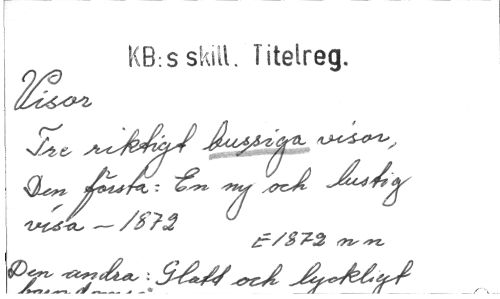 KB:s skill. Titelreg.
Visor
Tre riktigt bussiga visor,
Den första: En ny och lustig
visa – 1872
E 1872 n n
Den andra: Glatt och lyckligt